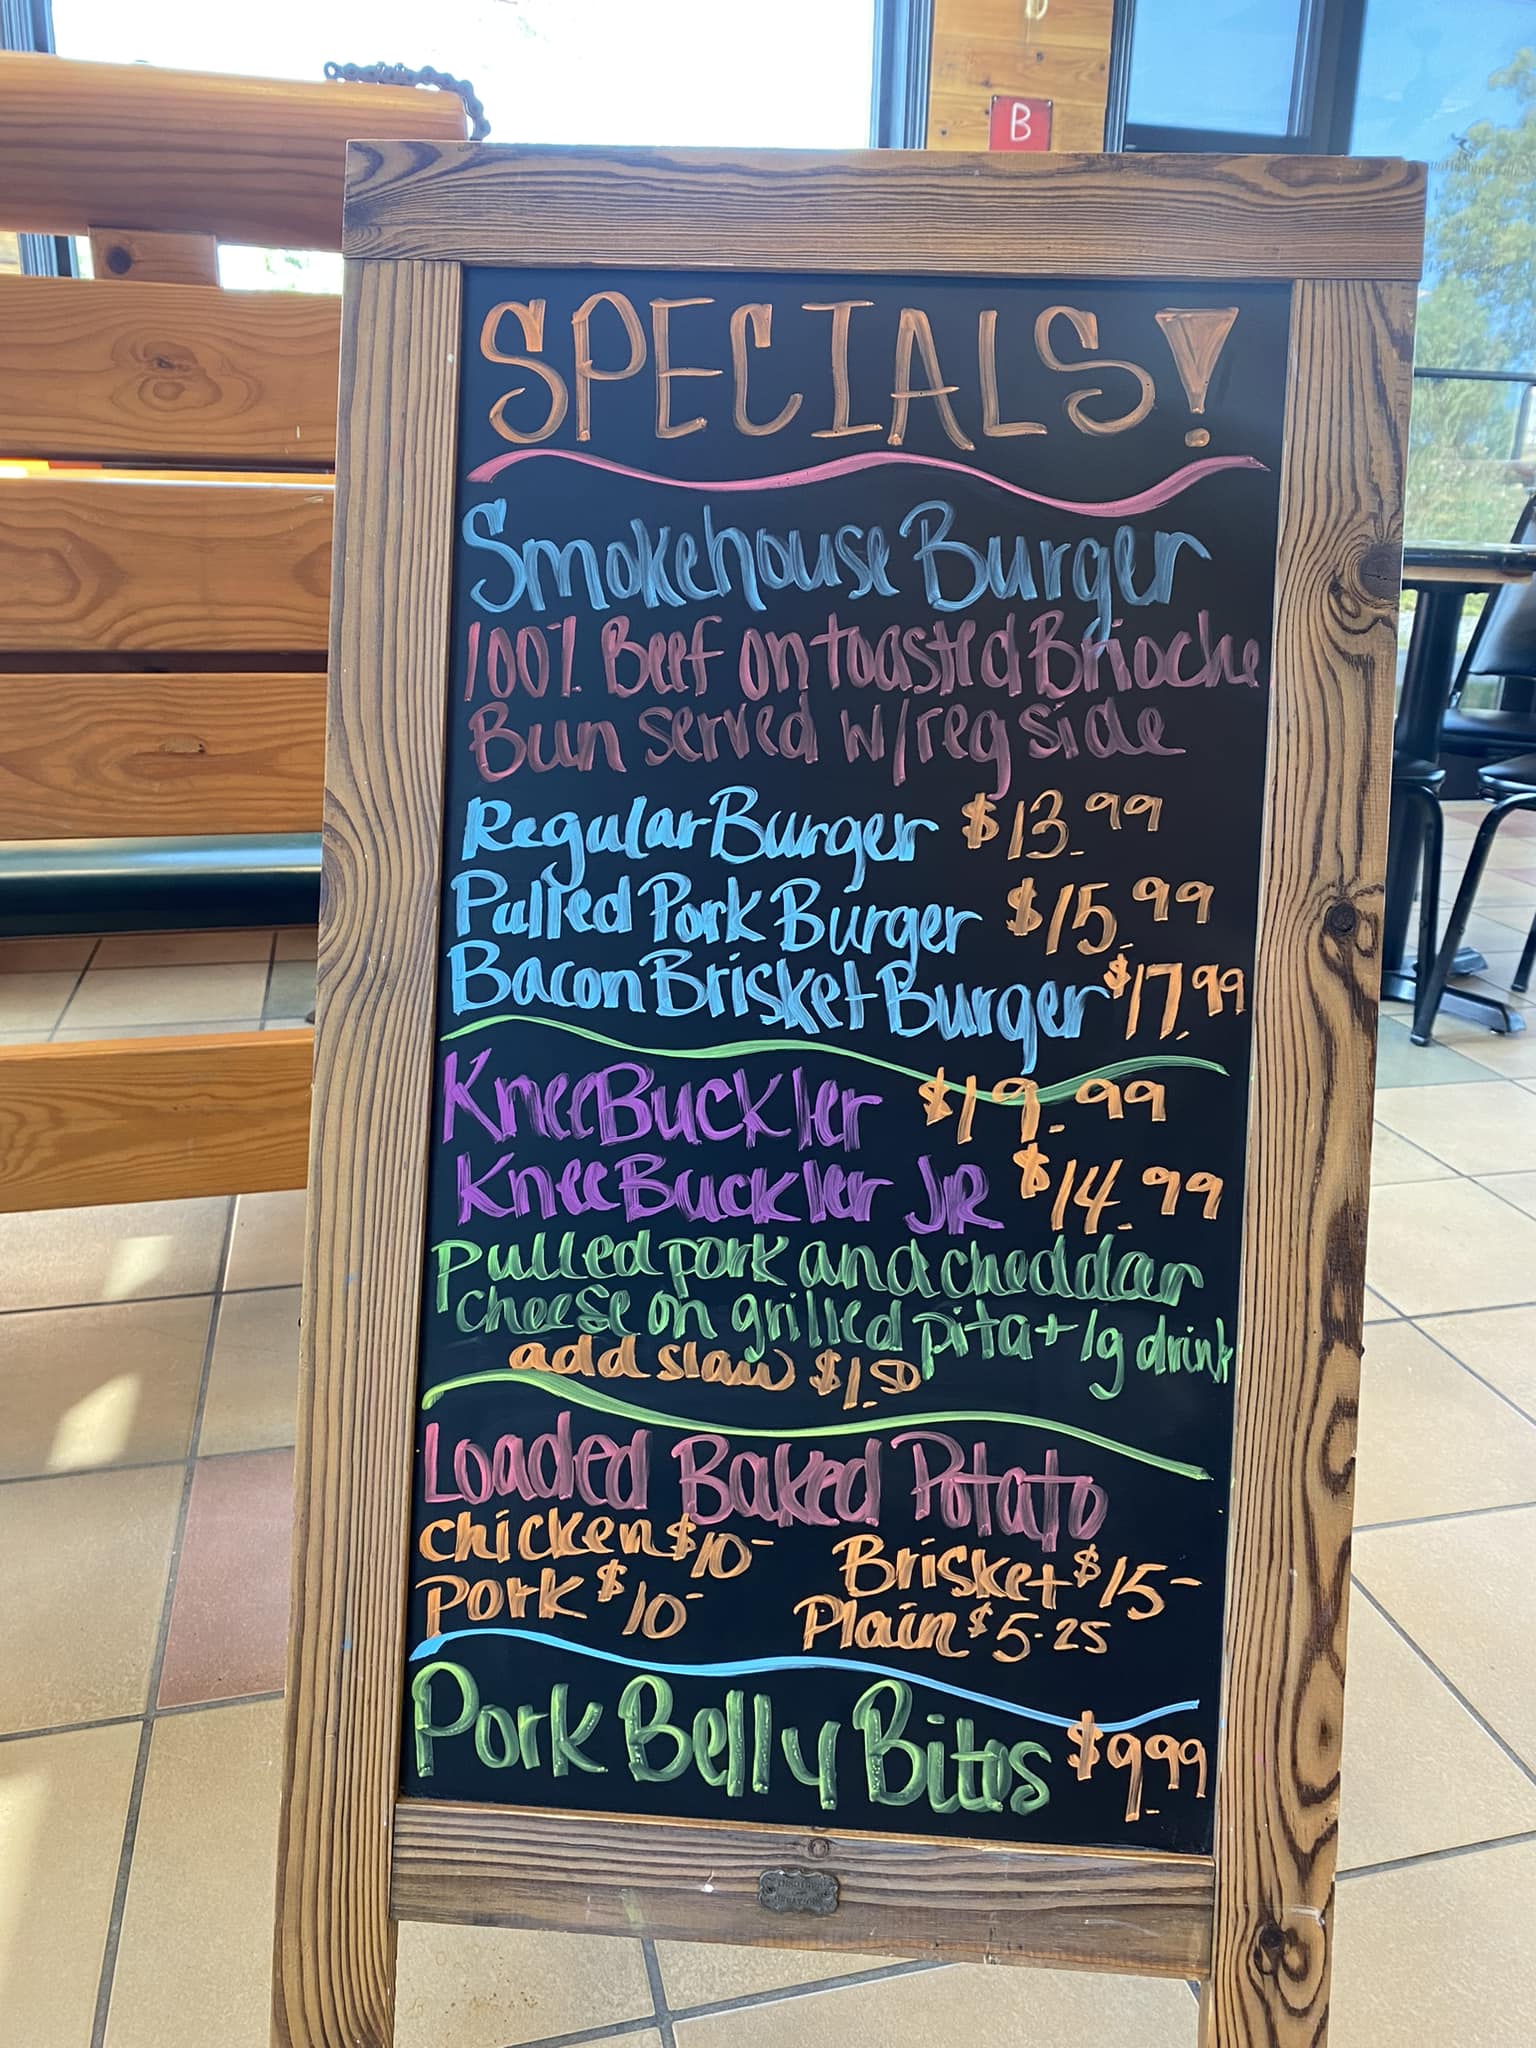 B
SPECIALS!
Smokehouse Burger
100% Beef on toasted Brioche
Bun served w/reg side
Regular Burger $13.99
Pulled Pork Burger $15.99
Bacon Brisket Burger $17.99
KneeBuckler $19.99
KneeBuckler JR $14.99
Pulled pork and cheddar
cheese on grilled pita + lg drink
add slaw $1.50
Loaded Baked Potato
chicken $10- Brisket $15-
Pork $10- Plain $5.25
Pork Belly Bites $9.99